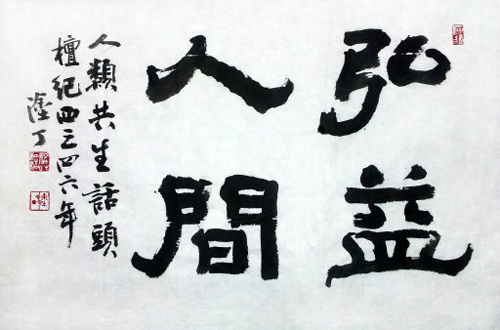 弘益
人間
人類共生話頭
檀紀四三四六年